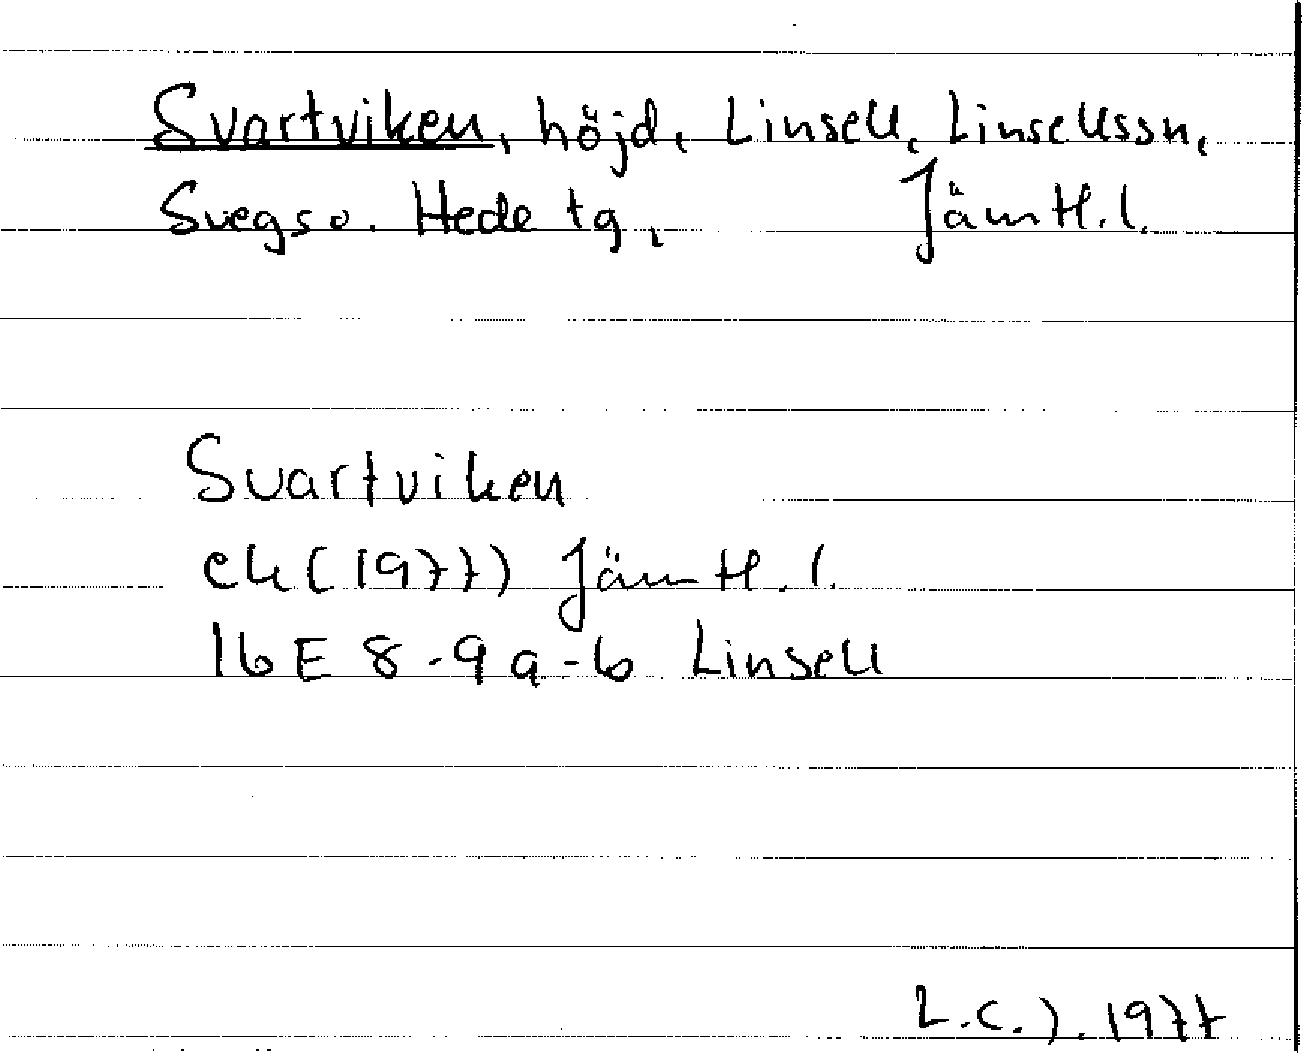 Svartviken, höjd, Linsell, Linsellssn,
Svegs o. Hede tg, Jämtl. l.
Svartviken
ek (1977) Jämtl. l.
16 E 8-9 a-b Linsell
L.C.J. 1977